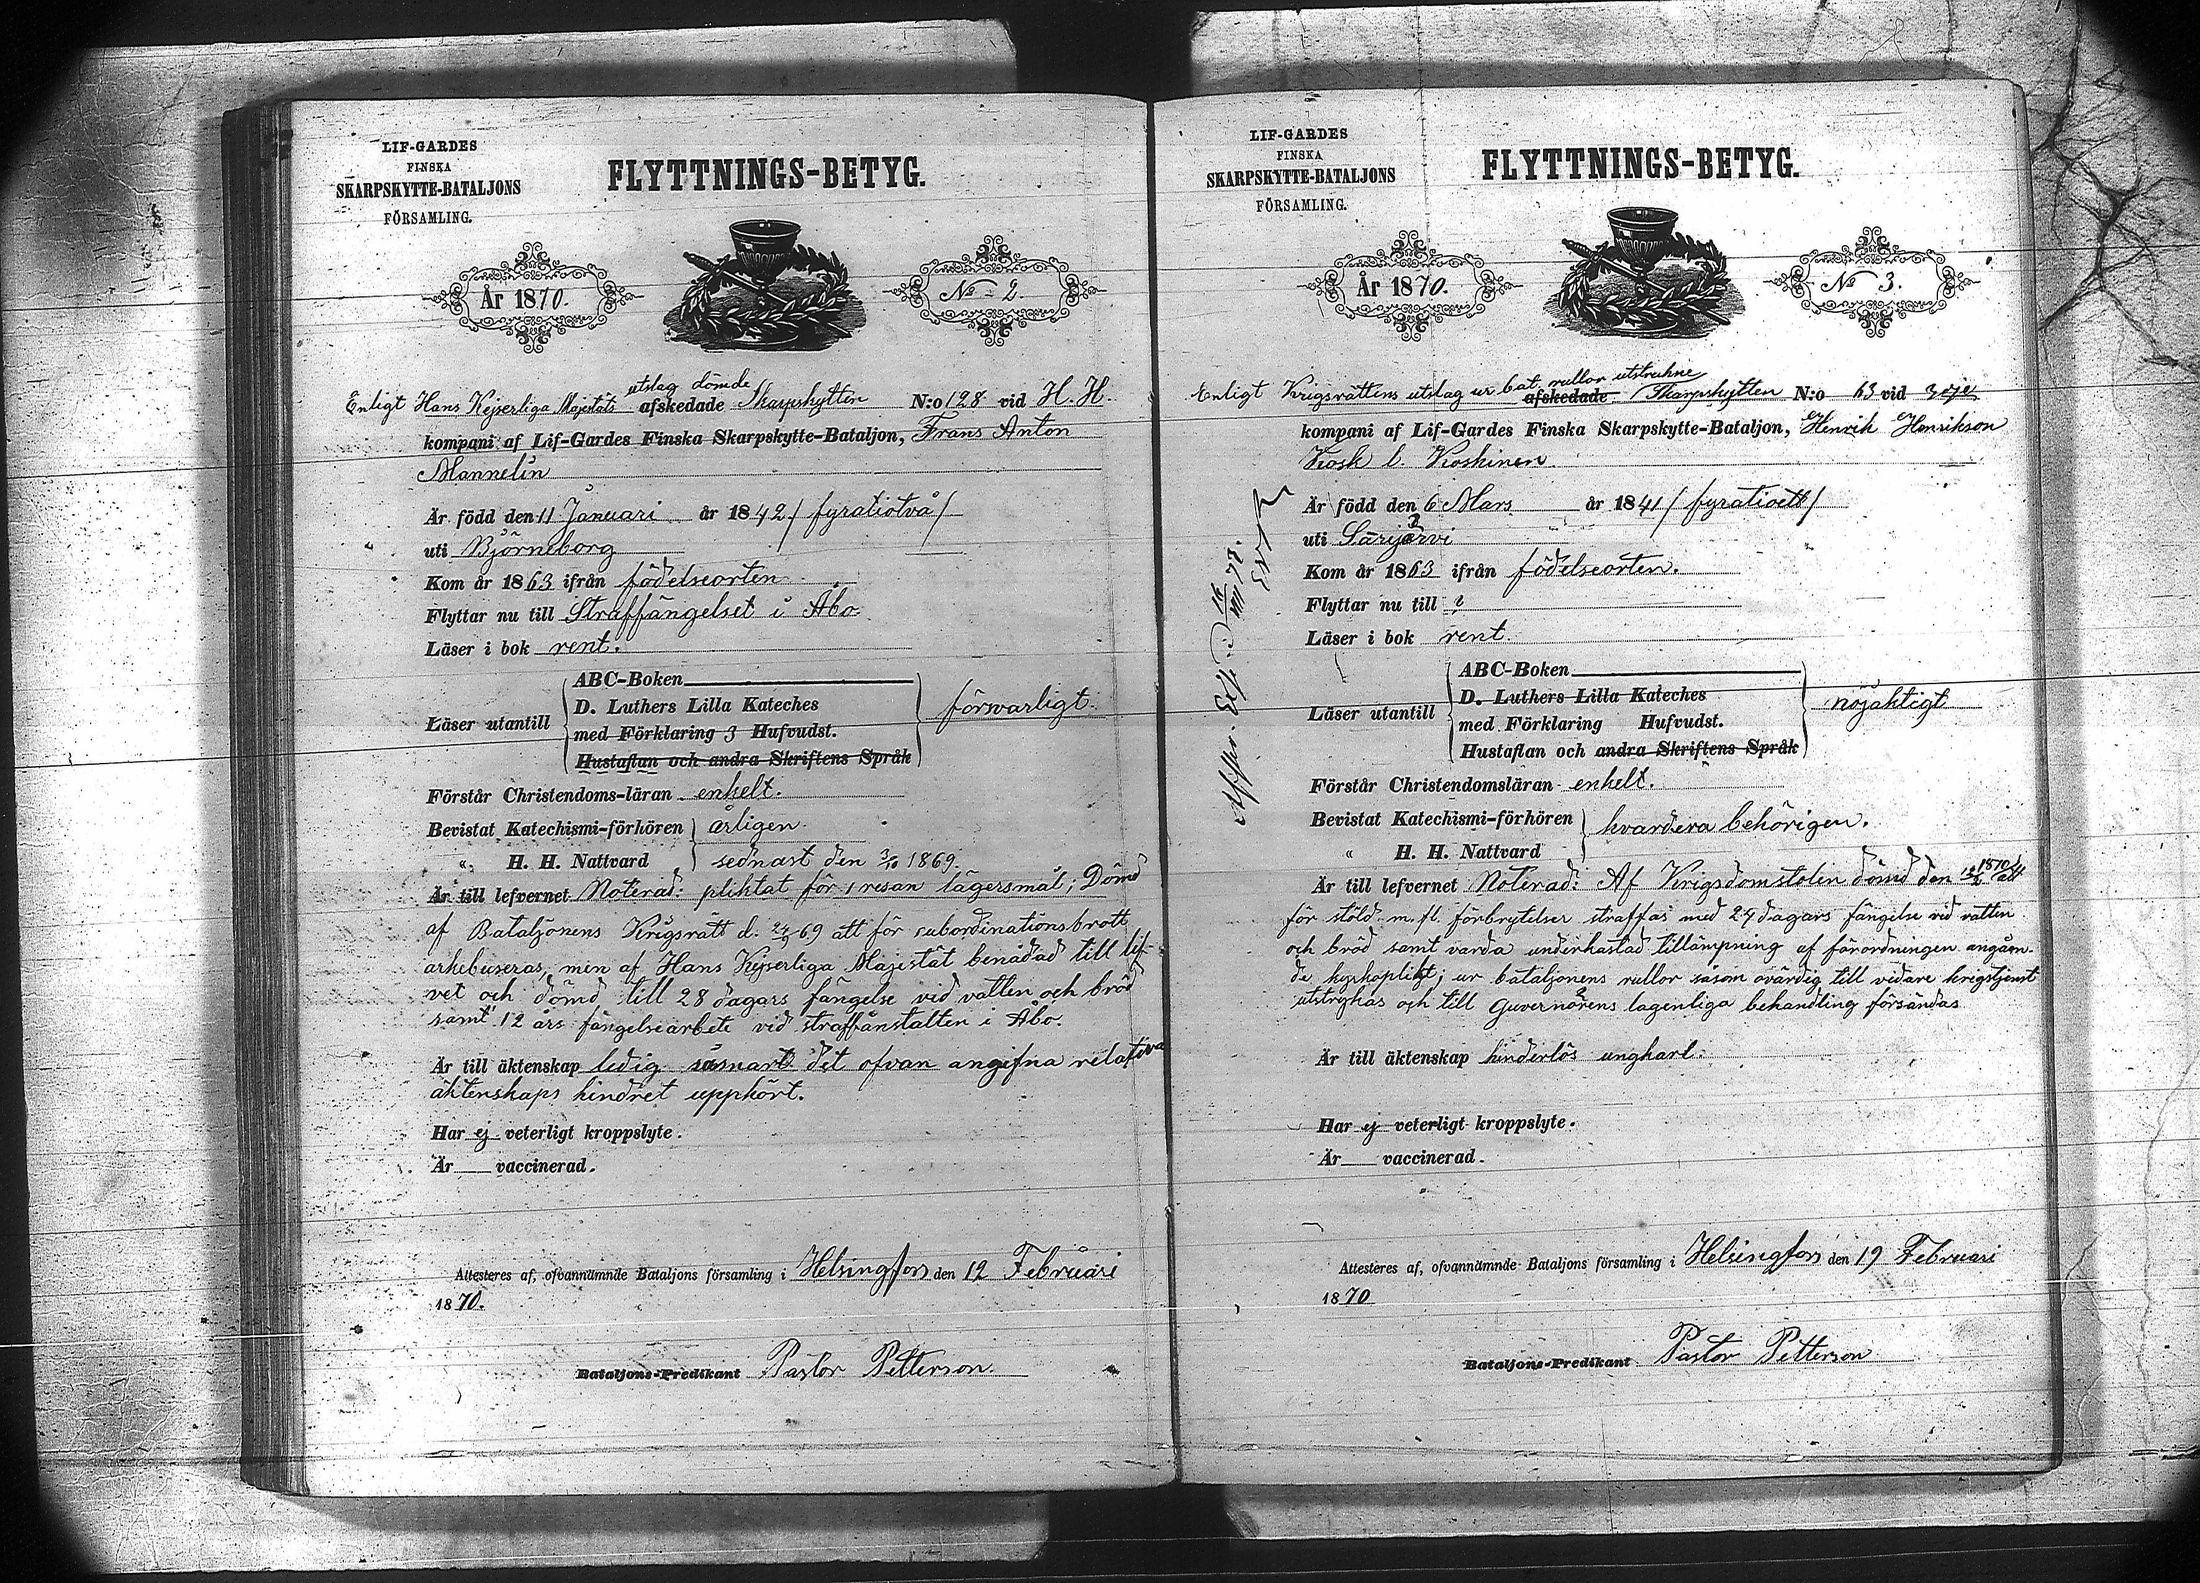 LIF-GARDES
FINSKA
SKARPSKYTTE-BATALJONS
FÖRSAMLING.
FLYTTNINGS-BETYG.
År 1870.
No 2.
utslag dömde
Enligt Hans Kejserliga Majestäts afskedade Skarpskytten N:o 128 vid H. H.
kompani af Lif-Gardes Finska Skarpskytte-Bataljon, Frans Anton
Mannelin
Är född den 11 Januari år 1842 / fyratiotvå /
uti Björneborg
Kom år 1863 ifrån födelseorten
Flyttar nu till Straffängelset i Åbo
Läser i bok rent.
Läser utantill
ABC-Boken
D. Luthers Lilla Kateches
med Förklaring 3 Hufvudst.
Hustaflan och andra Skriftens Språk
försvarligt.
Förstår Christendoms-läran enkelt.
Bevistat Katechismi-förhören årligen
" H. H. Nattvard sednast den 3/10 1869.
Är till lefvernet Noterad: pliktat för 1 resan lägersmål; Dömd
af Bataljonens Krigsrätt d. 24/9 69 att för subordinationsbrott
arkebuseras, men af Hans Kejserliga Majestät benådad till lif-
vet och dömd till 28 dagars fängelse vid vatten och bröd
samt 12 års fängelsearbete vid straffanstalten i Åbo.
Är till äktenskap ledig såsnart det ofvan angifna relativa
äktenskaps hindret upphört.
Har ej veterligt kroppslyte.
Är vaccinerad.
Attesteres af, ofvannämnde Bataljons församling i Helsingfors den 12 Februari
1870.
Bataljons-Predikant Pastor Petterson
LIF-GARDES
FINSKA
SKARPSKYTTE-BATALJONS
FÖRSAMLING.
FLYTTNINGS-BETYG.
År 1870.
No 3.
Enligt Krigsrättens utslag ur bat. rullor utstrukne
afskedade Skarpskytten N:o 63 vid 3dje
kompani af Lif-Gardes Finska Skarpskytte-Bataljon, Henrik Henrikson
Kosk l. Koskinen
Är född den 6 Mars år 1841 / fyratioett /
uti Sarijärvi
Kom år 1863 ifrån födelseorten.
Flyttar nu till ?
Läser i bok rent.
Läser utantill
ABC-Boken
D. Luthers Lilla Kateches
med Förklaring Hufvudst.
Hustaflan och andra Skriftens Språk
nöjaktigt
Förstår Christendomsläran enkelt.
Bevistat Katechismi-förhören
" H. H. Nattvard
hvardera behörigen.
Är till lefvernet Noterad: Af Krigsdomstolen dömd den 1870 att
för stöld m. fl. förbrytelser straffas med 24 dagars fängelse vid vatten
och bröd samt varda underkastad tillämpning af förordningen angåen-
de kyrkoplikt; ur bataljonens rullor såsom ovärdig till vidare krigstjenst
utstrykas och till Guvernörens lagenliga behandling försändas
Är till äktenskap hinderlös ungkarl.
Har ej veterligt kroppslyte.
Är vaccinerad.
Attesteres af, ofvannämnde Bataljons församling i Helsingfors den 19 Februari
1870
Bataljons-Predikant Pastor Petterson